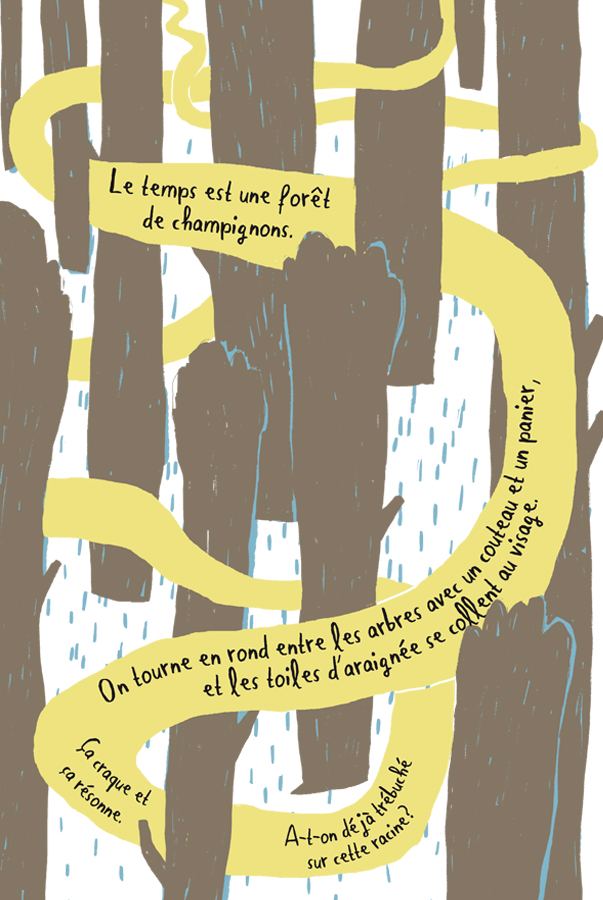 Le temps est une forêt
de champignons.
On tourne en rond entre les arbres avec un couteau et un panier,
et les toiles d'araignée se collent au visage.
Ça craque et
ça résonne.
A-t-on déjà trébuché
sur cette racine?